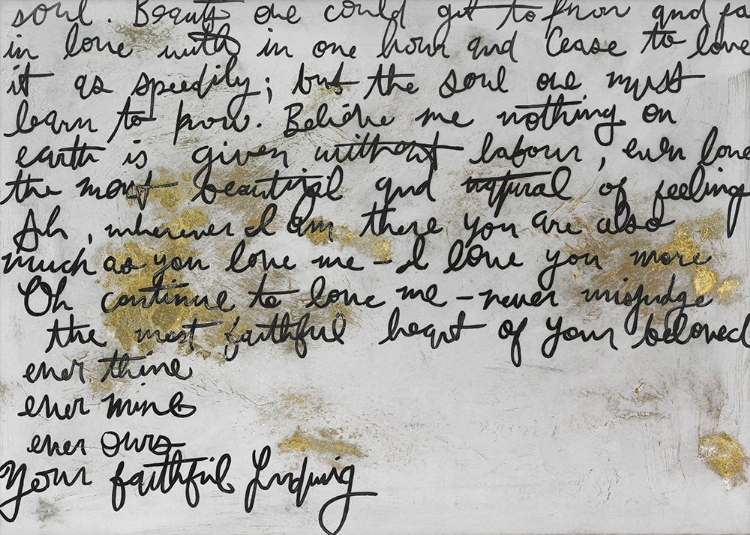 soul. Beauty one could get to know and fa
in love with in one hour and cease to love
it as speedily; but the soul one must
learn to know. Believe me nothing on
earth is given without labour, even love
the most beautiful and natural of feeling
Ah, wherever I am there you are also
much as you love me - I love you more
Oh continue to love me - never misjudge
the most faithful heart of your beloved
ever thine
ever mine
ever ours
Your faithful Ludwig